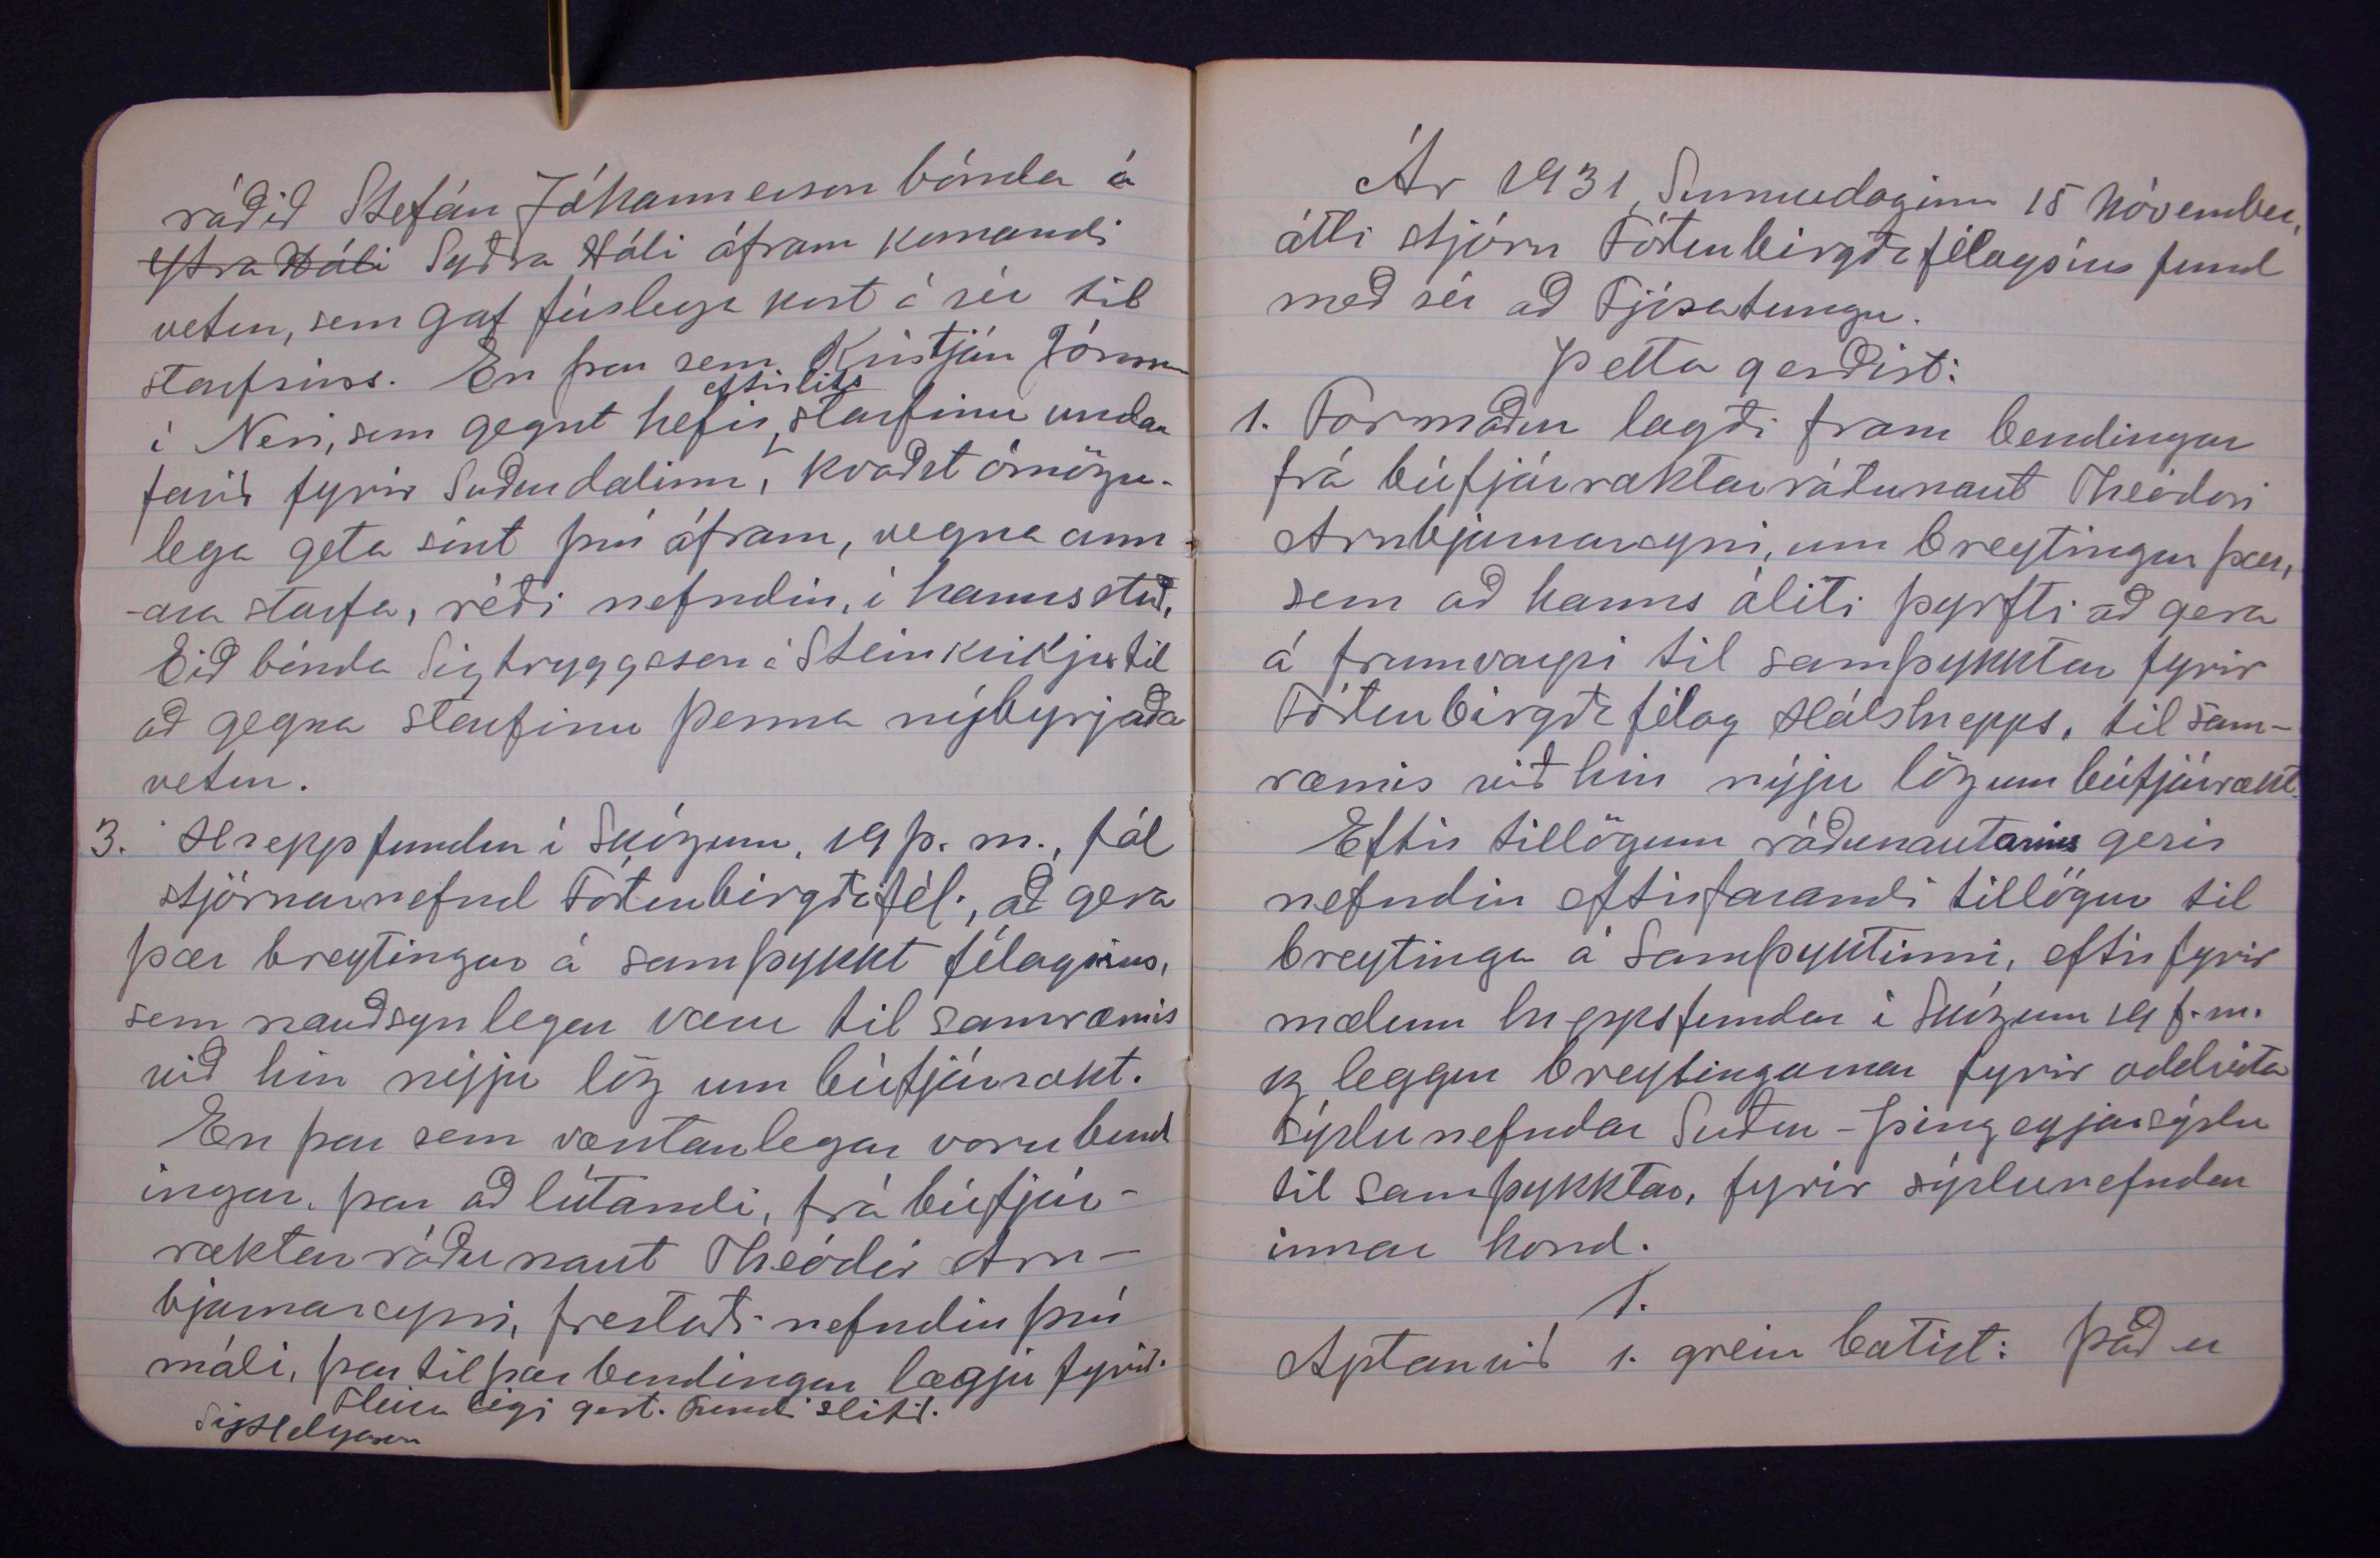 ráðið Stefán Jóhannesson bónda á
Ytra Hóli Syðra Hóli áfram komandi
vetur, sem gaf fúslega kost á sér til
starfsins. En þar sem Kristján Jónsson
í Nesi, sem gegnt hefir eftirlits starfinu undan
farið fyrir Suðurdalinn, kvaðst ómögu-
lega geta sint því áfram, vegna ann-
-ara starfa, réði nefndin, í hanns stað,
Eið bónda Sigtryggsson í Steinkirkju til
að gegna starfinu þenna nýbyrjaða
vetur.
3. Hreppfundur í Skógum, 19 þ. m., fól
stjórnarnefnd Fóðurbirgðafél., að gera
þær breytingar á samþykkt félagsins,
sem nauðsynlegar væru til samræmis
við hin nýju lög um búfjárrækt.
En þar sem væntanlegar voru bend
ingar, þar að lútandi, frá búfjár-
ræktarráðunaut Theódór Arn-
bjarnarsyni, frestaði nefndin því
máli, þar til þær bendingar lægju fyrir.
Fleira eigi gert. Fundi slitið.
Sig Helgason
Ár 1931, Sunnudaginn 15 Nóvember,
átti stjórn Fóðurbirgðafélagsins fund
með sér að Fjósatungu.
Þetta gerðist:
1. Formaður lagði fram bendingar
frá búfjárræktarráðunaut Theódóri
Arnbjarnarsyni, um breytingar þær,
sem að hanns áliti þyrfti að gera
á frumvarpi til samþykktar fyrir
Fóðurbirgðafélag Hálshrepps, til sam-
ræmis við hin nýju lög um búfjárrækt.
Eftir tillögum ráðunautarins gerir
nefndin eftirfarandi tillögur til
breytinga á Samþyktinni, eftir fyrir
mælum hreppsfundar í Skógum 19 f. m.
og leggur breytingarnar fyrir oddvita
sýslunefndar Suður-Þingeyjarsýslu
til samþykktar, fyrir sýslunefndar
innar hönd.
1.
Aptan við 1. grein bætist: Það er